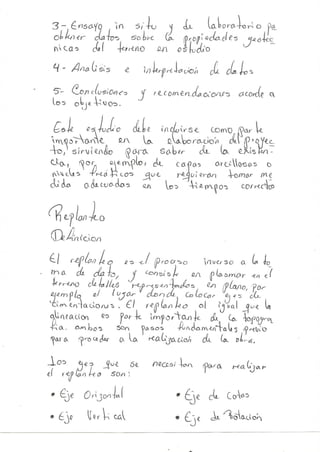 3- Ensayo in situ y de laboratorio pa
obtener datos sobre la propiedades geotec
nicas del terreno en estudio
4- Analisis e interpretación de datos
5- Conclusiones y recomendaciones acorde a
los objetivos.
Este estudio debe incluirse como parte
importante en la elaboración del proyec
to, sirviendo para saber de la existen-
cia, por ejemplo, de capas arcillosas o
niveles freáticos que requieran tomar me
didas adecuadas en los tiempos correctos
Replanteo
Definicion
El replanteo es el proceso inverso a la to
ma de dato, y consiste en plasmar en el
terreno detalles representados en plano, por
ejemplo el lugar donde colocar ejes de
cimentaciones. El replanteo al igual que la
alineacion es parte importante de la topogra
fia. ambos son pasos fundamentales previo
para proceder a la realización de la obra.
Los ejes que se necesitan para realizar
el replanteo son:
• Eje Orizontal • Eje de Cotas
• Eje Vertical • Eje de Rotacion